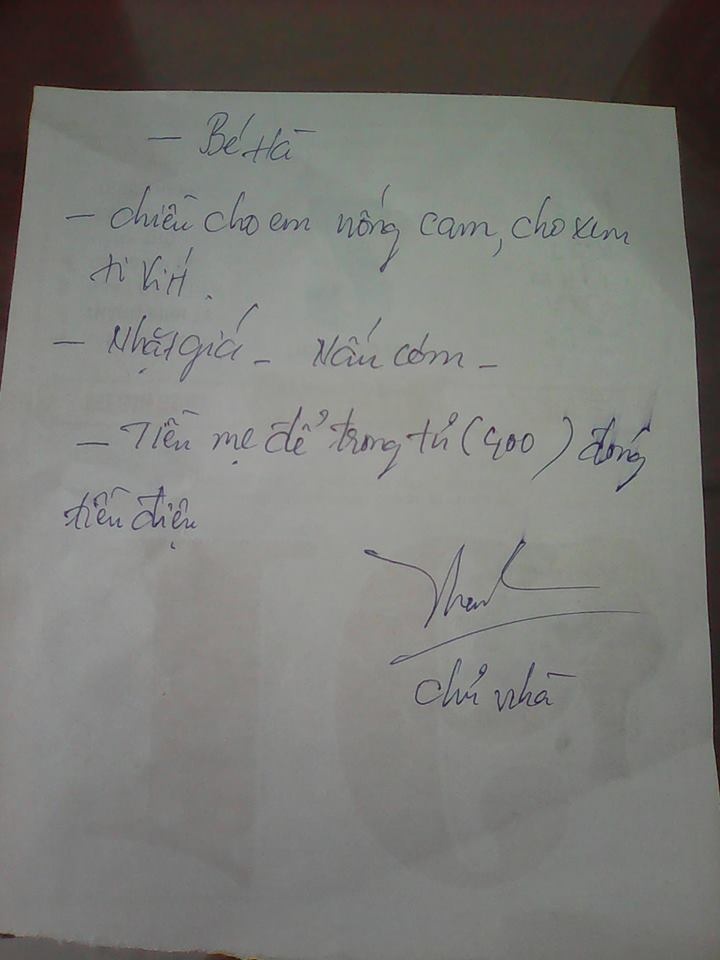 - Bé Hà
- chiều cho em uống cam, cho xem
ti vi
- Nhặt giá - Nấu cơm -
- Tiền mẹ để trong tủ (400) đóng
tiền điện
chủ nhà